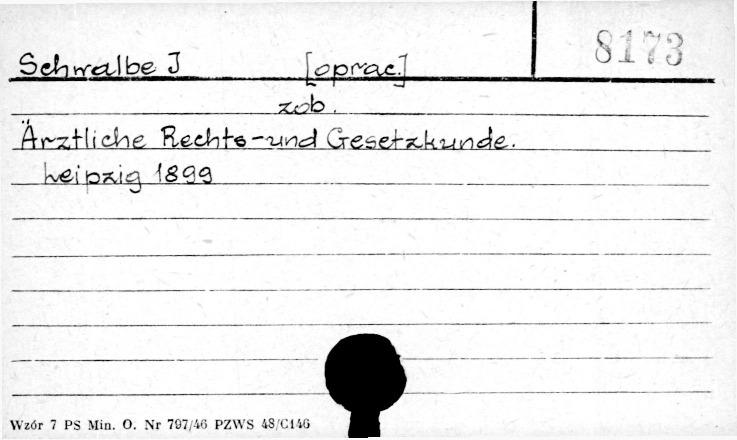 8173
Schwalbe J [oprac.]
zob.
Ärztliche Rechts-und Gesetzkunde.
Leipzig 1899
Wzór 7 PS Min. O. Nr 797/46 PZWS 48/C146